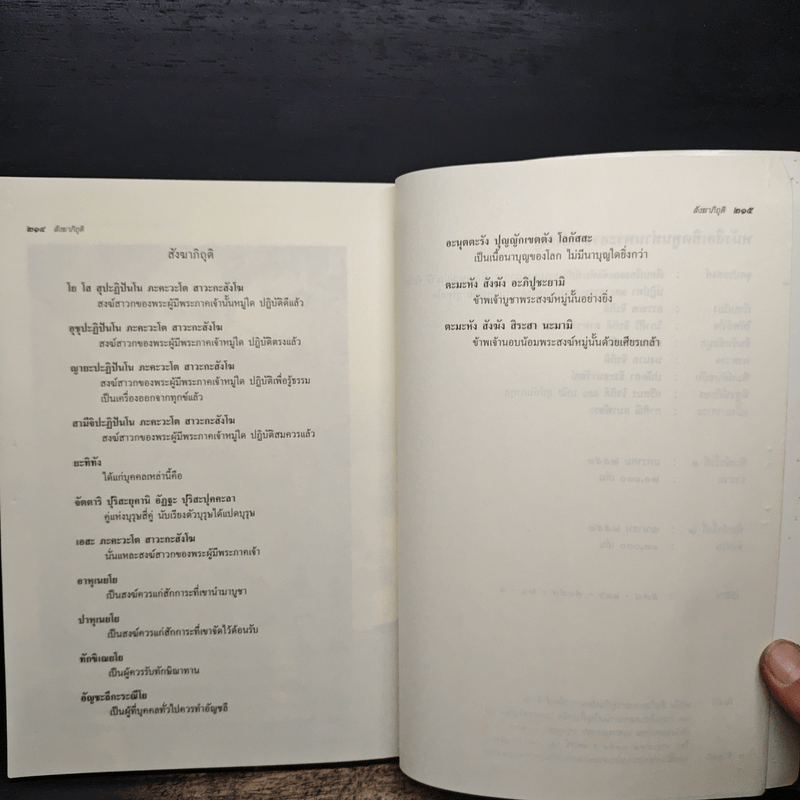 ๒๑๔ สังฆาภิถุติ
สังฆาภิถุติ
โย โส สุปะฏิปันโน ภะคะวะโต สาวะกะสังโฆ
สงฆ์สาวกของพระผู้มีพระภาคเจ้านั้นหมู่ใด ปฏิบัติดีแล้ว
อุชุปะฏิปันโน ภะคะวะโต สาวะกะสังโฆ
สงฆ์สาวกของพระผู้มีพระภาคเจ้าหมู่ใด ปฏิบัติตรงแล้ว
ญายะปะฏิปันโน ภะคะวะโต สาวะกะสังโฆ
สงฆ์สาวกของพระผู้มีพระภาคเจ้าหมู่ใด ปฏิบัติเพื่อรู้ธรรม
เป็นเครื่องออกจากทุกข์แล้ว
สามีจิปะฏิปันโน ภะคะวะโต สาวะกะสังโฆ
สงฆ์สาวกของพระผู้มีพระภาคเจ้าหมู่ใด ปฏิบัติสมควรแล้ว
ยะทิทัง
ได้แก่บุคคลเหล่านี้คือ
จัตตาริ ปุริสะยุคานิ อัฏฐะ ปุริสะปุคคะลา
คู่แห่งบุรุษสี่คู่ นับเรียงตัวบุรุษได้แปดบุรุษ
เอสะ ภะคะวะโต สาวะกะสังโฆ
นั่นแหละสงฆ์สาวกของพระผู้มีพระภาคเจ้า
อาหุเนยโย
เป็นสงฆ์ควรแก่สักการะที่เขานำมาบูชา
ปาหุเนยโย
เป็นสงฆ์ควรแก่สักการะที่เขาจัดไว้ต้อนรับ
ทักขิเณยโย
เป็นผู้ควรรับทักษิณาทาน
อัญชะลีกะระณีโย
เป็นผู้ที่บุคคลทั่วไปควรทำอัญชลี
สังฆาภิถุติ ๒๑๕
อะนุตตะรัง ปุญญักเขตตัง โลกัสสะ
เป็นเนื้อนาบุญของโลก ไม่มีนาบุญใดยิ่งกว่า
ตะมะหัง สังฆัง อะภิปูชะยามิ
ข้าพเจ้าบูชาพระสงฆ์หมู่นั้นอย่างยิ่ง
ตะมะหัง สังฆัง สิระสา นะมามิ
ข้าพเจ้านอบน้อมพระสงฆ์หมู่นั้นด้วยเศียรเกล้า